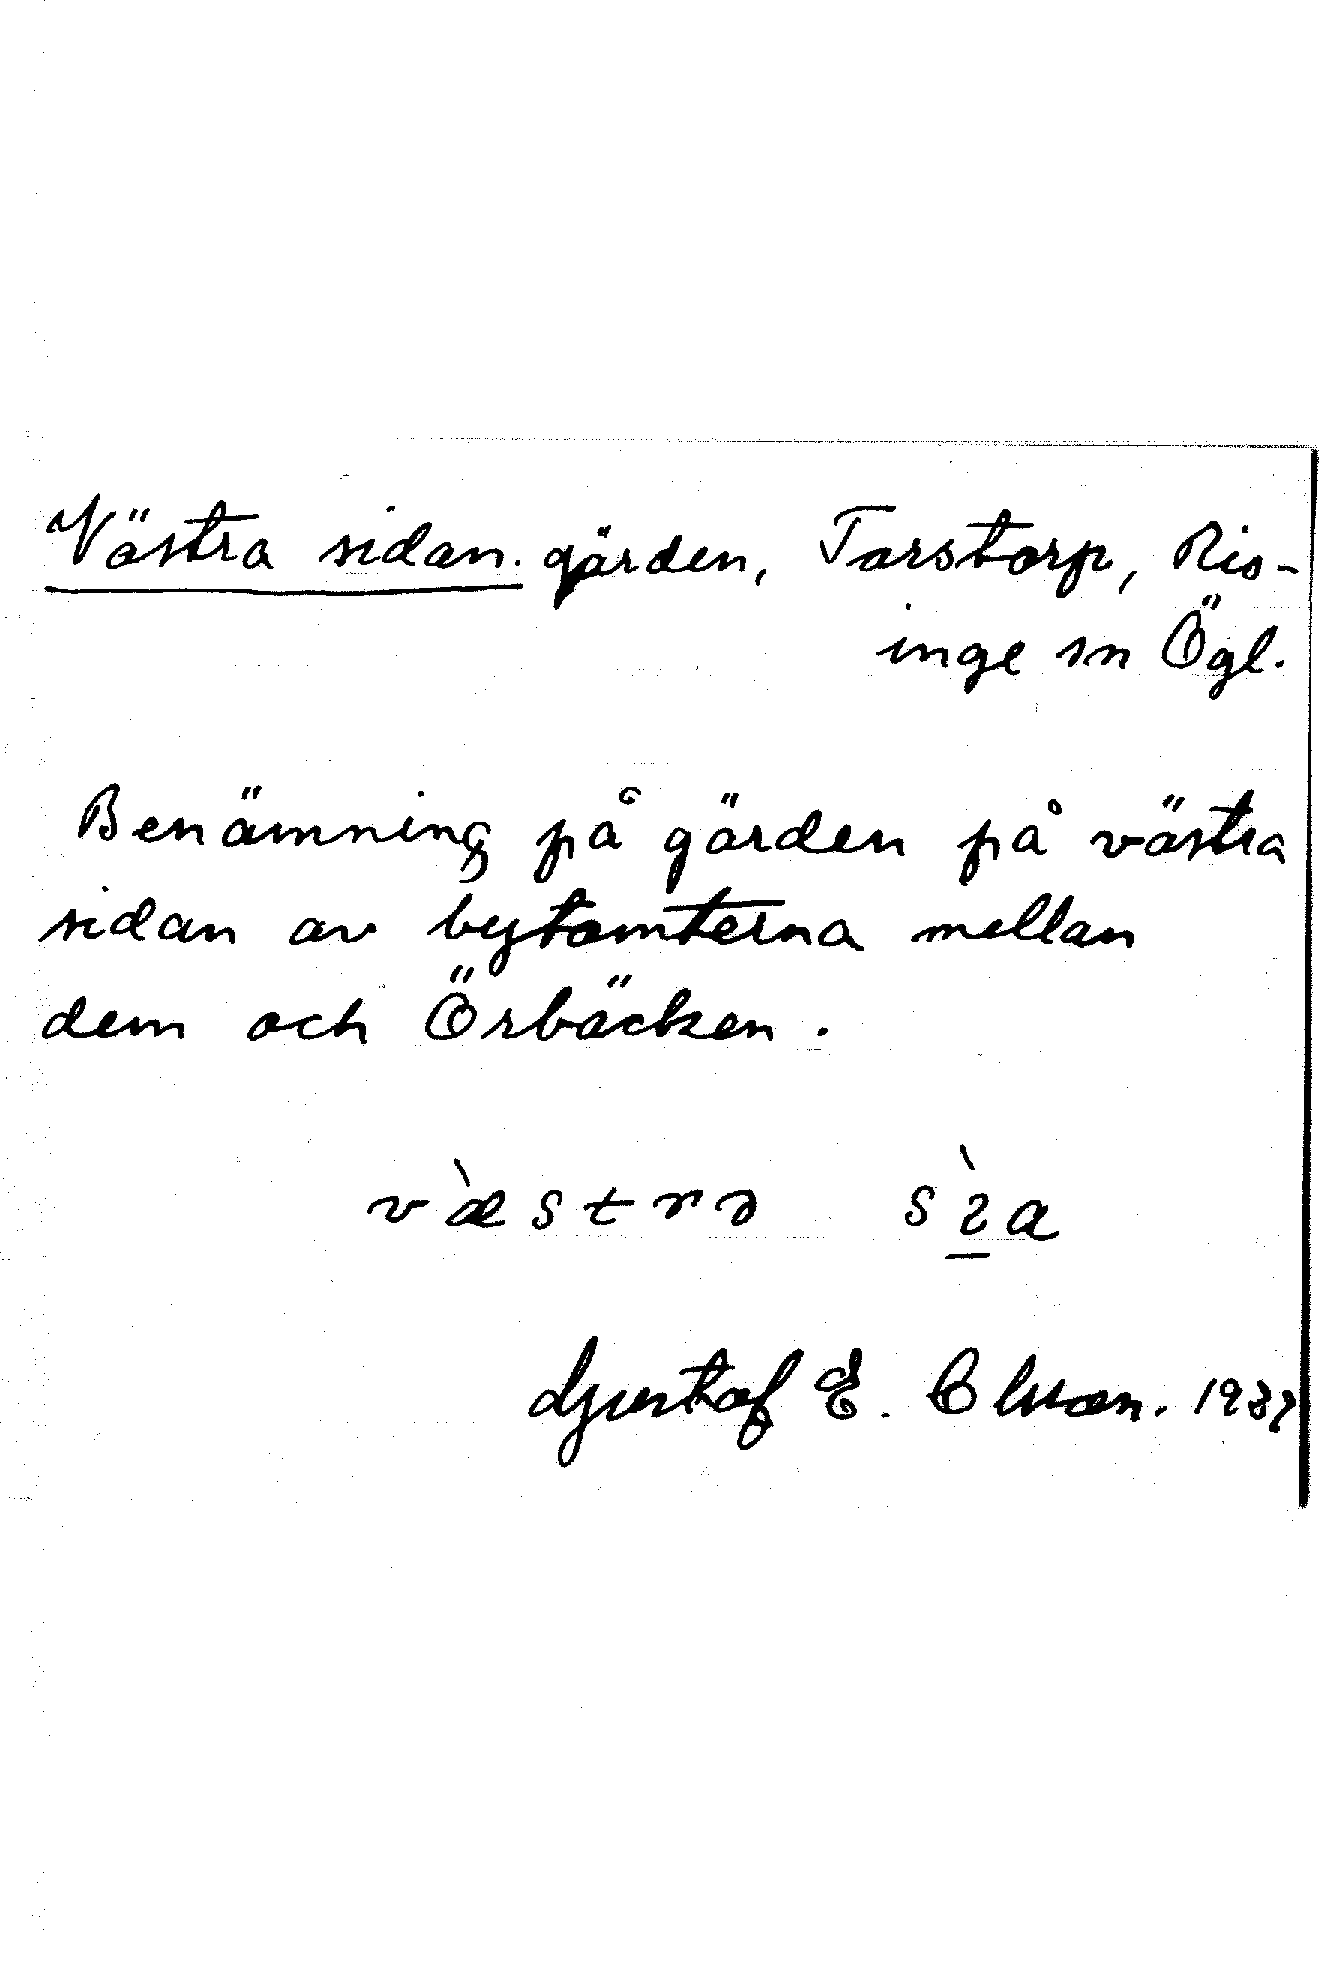 Västra sidan. gärden, Torstorp, Ris-
inge sn Ögl.
Benämning på gärden på västra
sidan av bytomterna mellan
dem och Örbäcken.
væ̀strə sı̀a
Gustaf E. Olsson. 1937